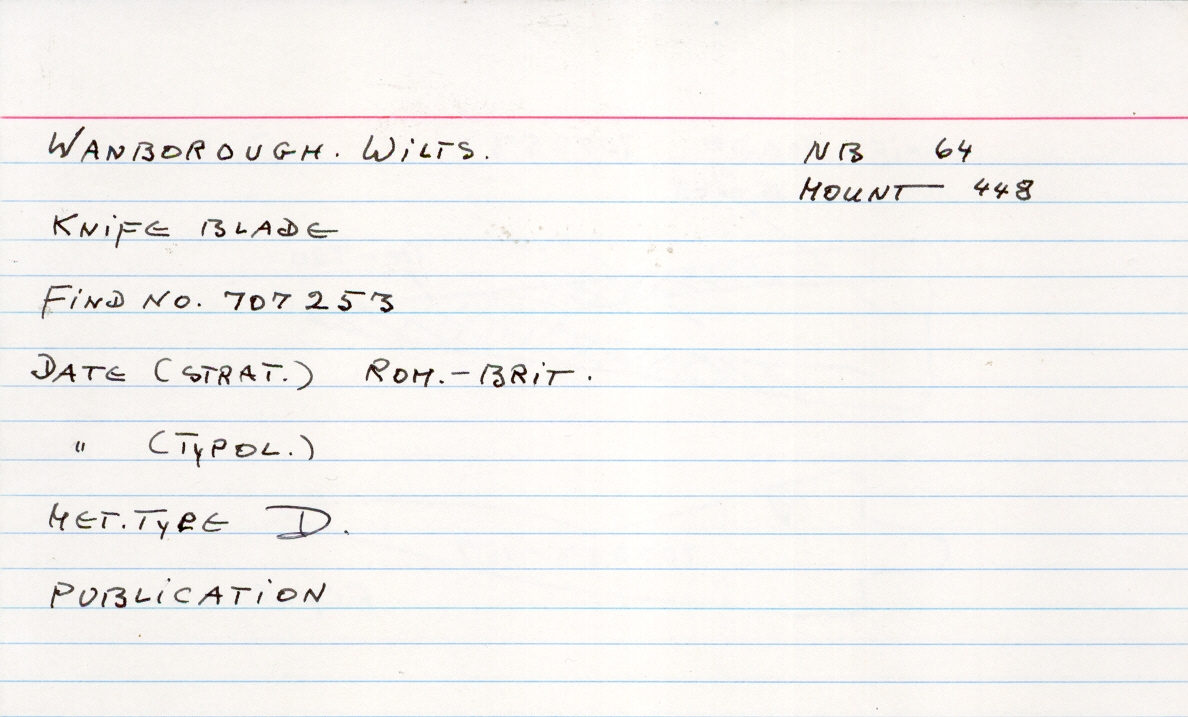 WANBOROUGH. WILTS. NB 64
MOUNT 448
KNIFE BLADE
FIND NO. 707253
DATE (STRAT.) ROM.-BRIT.
" (TYPOL.)
MET.TYPE D.
PUBLICATION